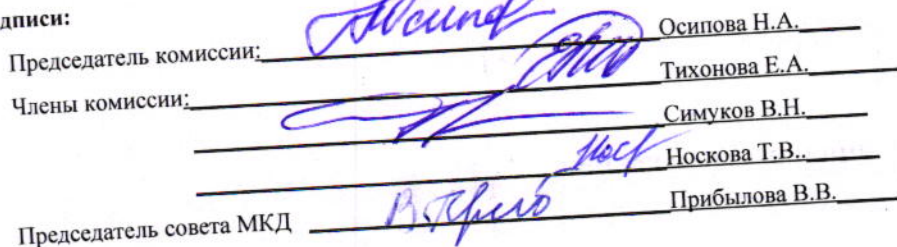 дписи:
Председатель комиссии: Осипова Н.А.
Члены комиссии: Тихонова Е.А.
Симуков В.Н.
Носкова Т.В..
Председатель совета МКД Прибылова В.В.